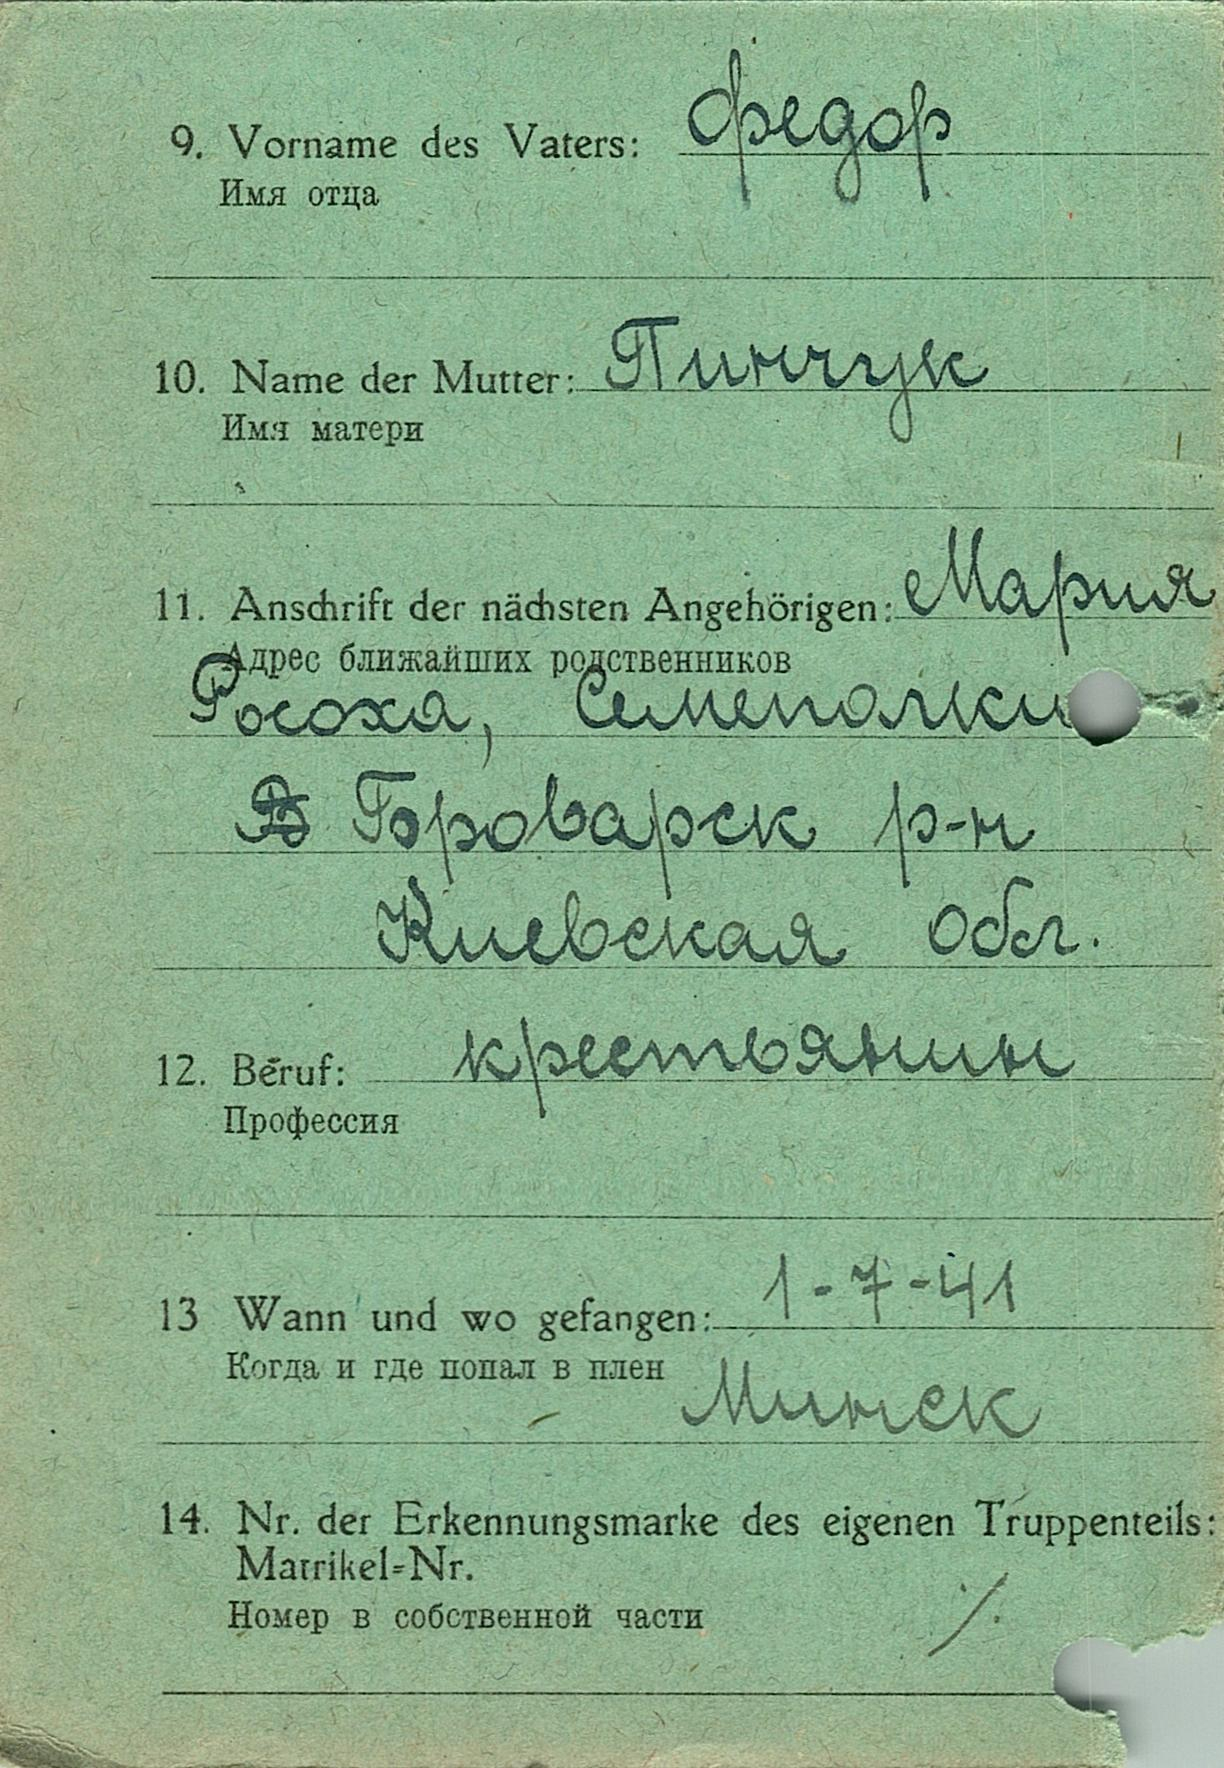 9. Vorname des Vaters: Федор
Имя отца
10. Name der Mutter: Пинчук
Имя матери
11. Anschrift der nächsten Angehörigen: Мария
Адрес ближайших родственников
Росоха, Семеполки
Броварск р-н
Киевская обл.
12. Beruf: крестьянин
Профессия
13 Wann und wo gefangen: 1-7-41
Когда и где попал в плен
Минск
14. Nr. der Erkennungsmarke des eigenen Truppenteils:
Matrikel=Nr.
Номер в собственной части